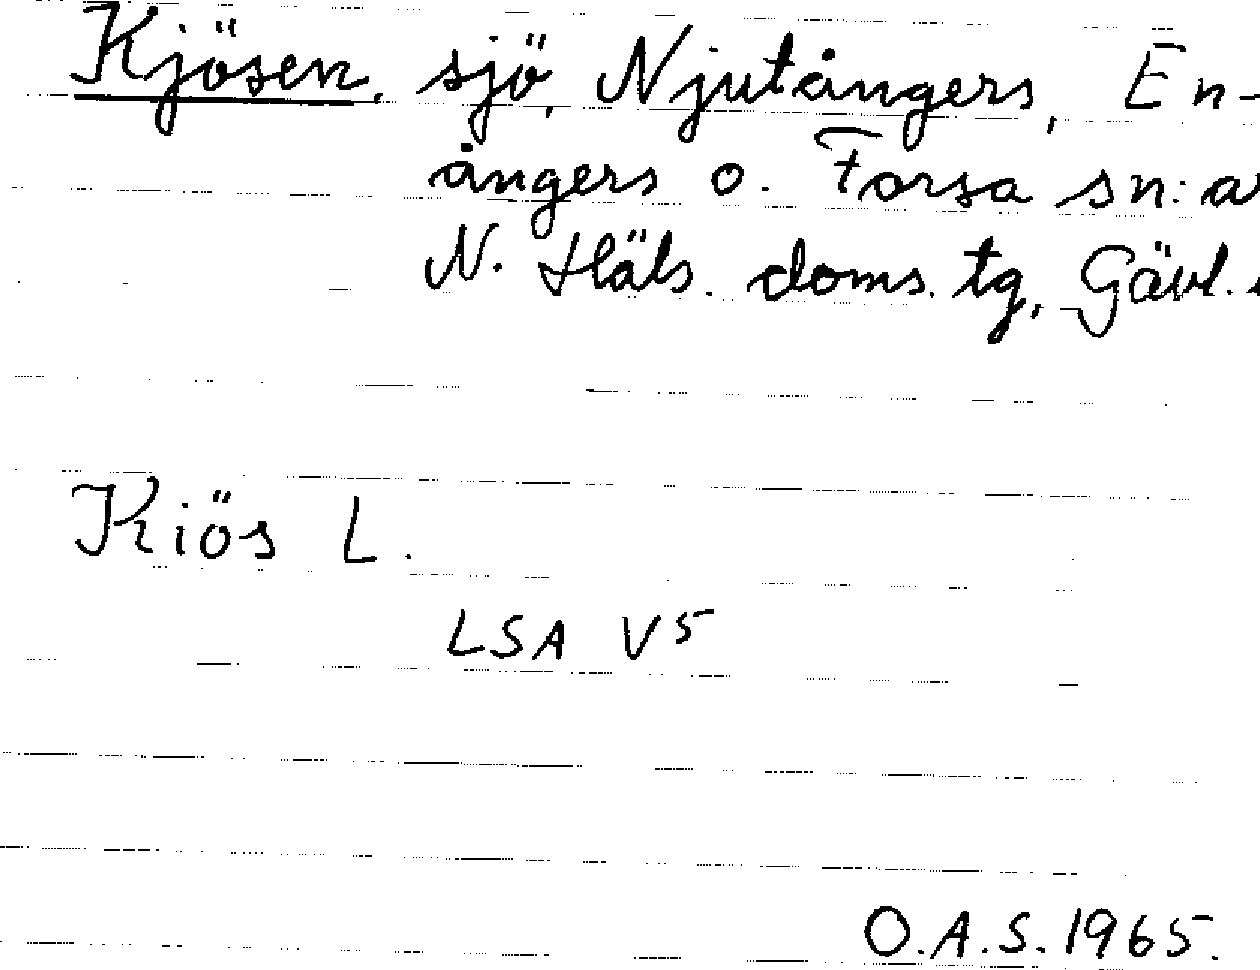 Kjösen, sjö, Njutångers, En-
ångers o. Forsa sn:ar
N. Häls. doms. tg, Gävl.
Kiös L.
LSA V5
O.A.S. 1965.